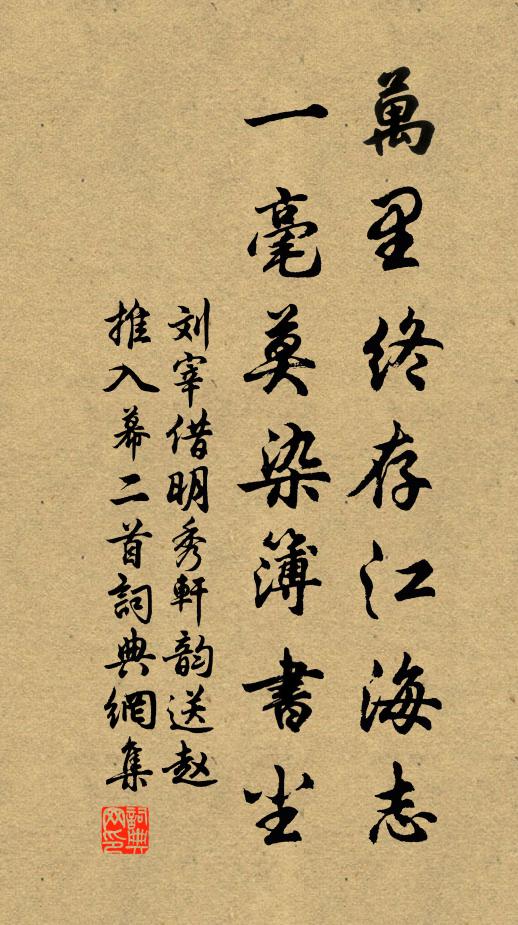 萬里终存江海志
一毫莫染簿書尘
刘宰借明秀軒韵送赵
推入幕二首詞典網集
詞典网印